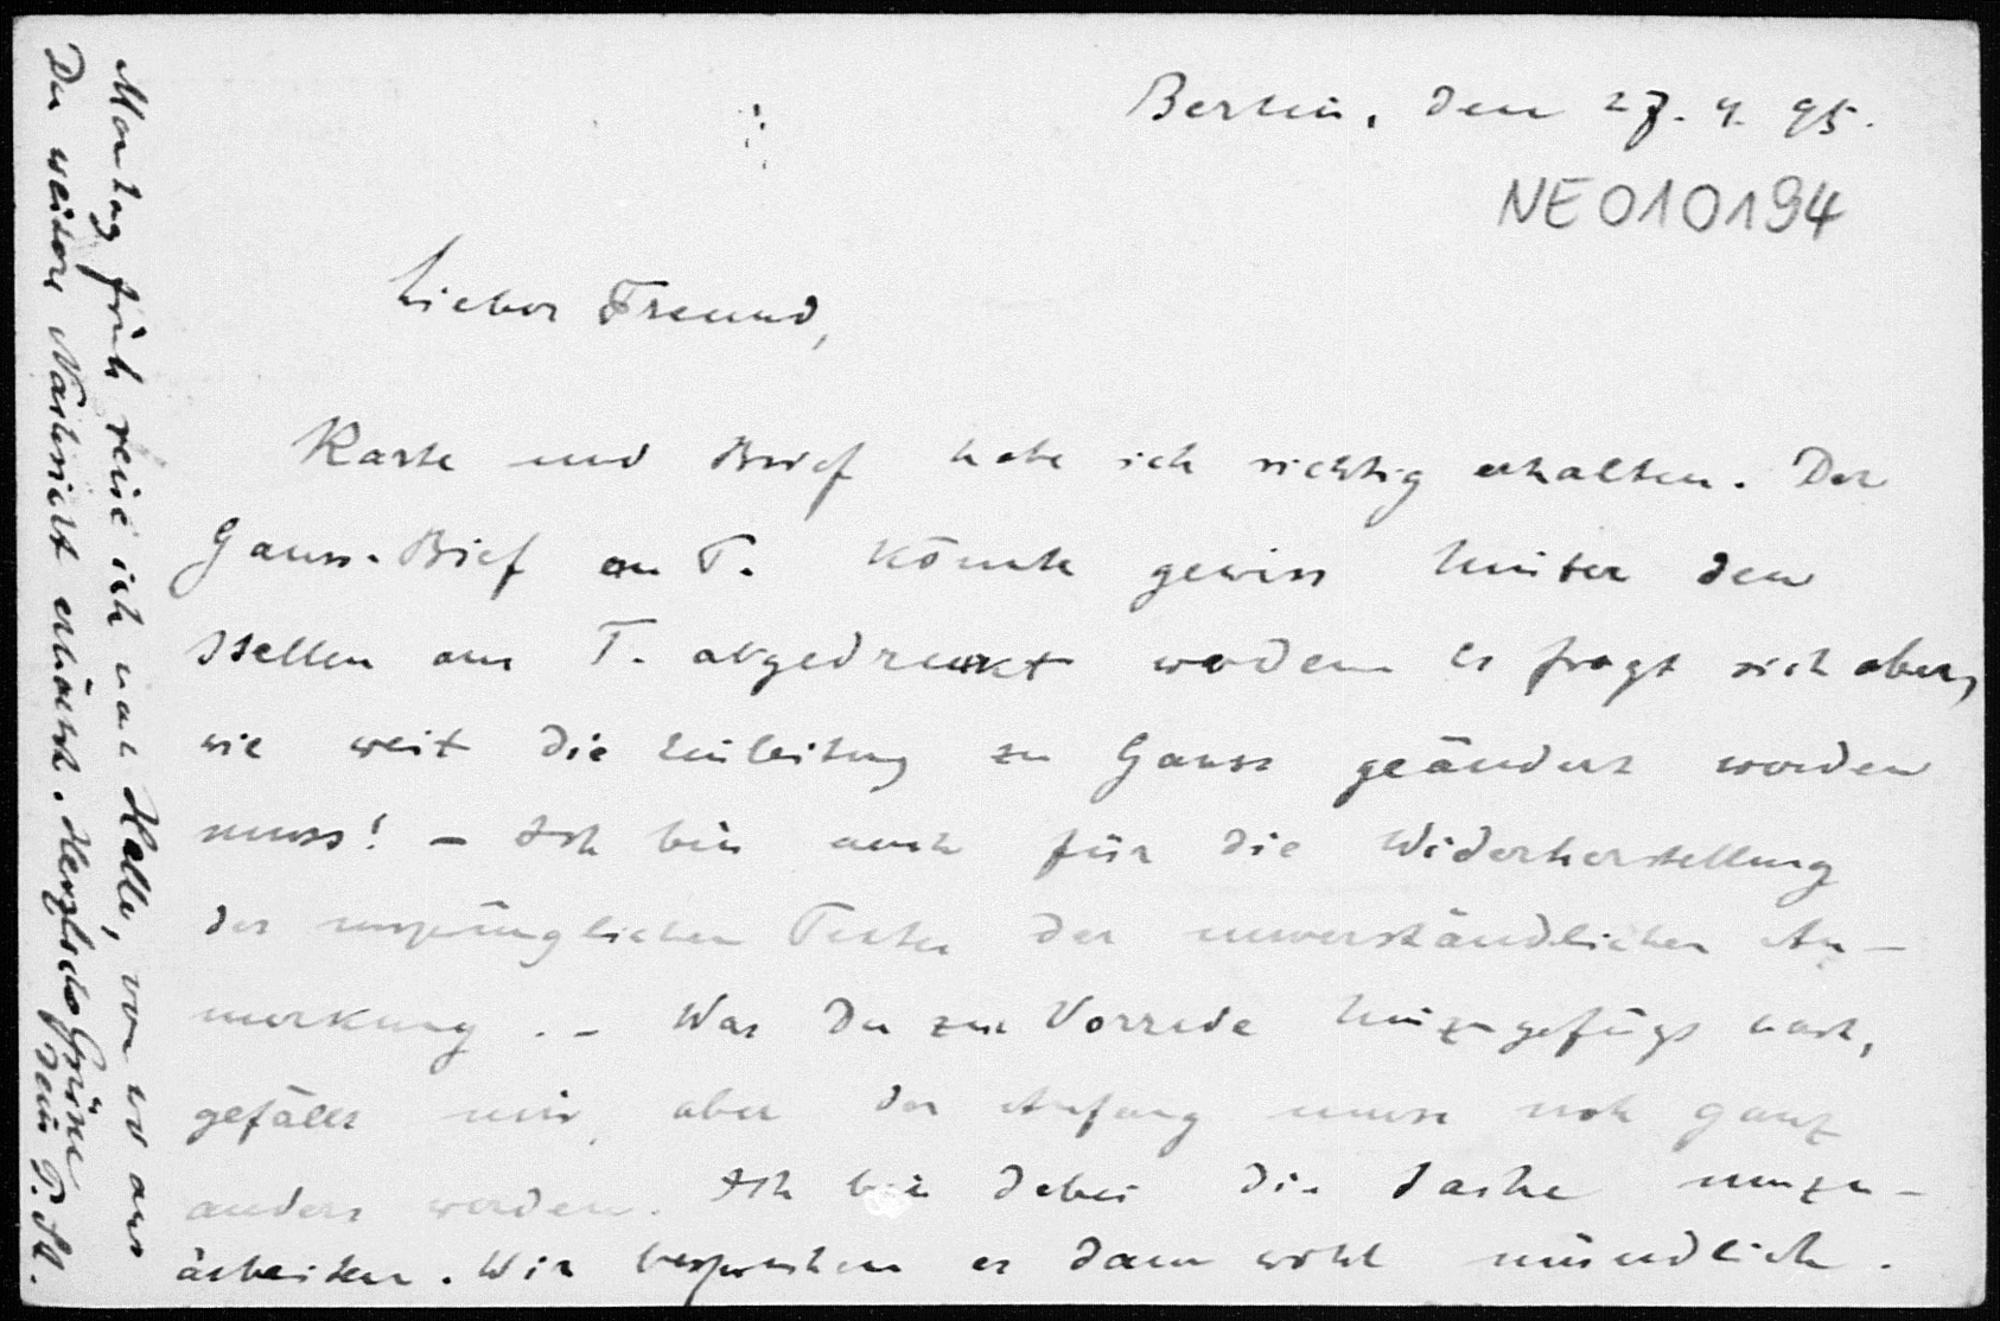 Berlin, den 27. 4. 95.
NE010194
Lieber Freund,
Karte und Brief habe ich richtig erhalten. Der
Gauss-Brief an T. könnte gewiss hinter den
Stellen aus T. abgedruckt werden es fragt sich aber,
wie weit die Einleitung zu Gauss geändert werden
muss! - Ich bin auch für die Widerherstellung
des ursprünglichen Textes der unverständlichen An-
merkung. - Was Du zur Vorrede hinzugefügt hast,
gefällt mir, aber der Anfang muss noch ganz
anders werden. Ich bin dabei die Sache umzu-
arbeiten. Wir besprechen es dann wohl mündlich.
Montag früh reise ich nach Halle, von wo aus
Du weitere Nachricht erhältst. Herzliche Grüsse
Dein P. St.